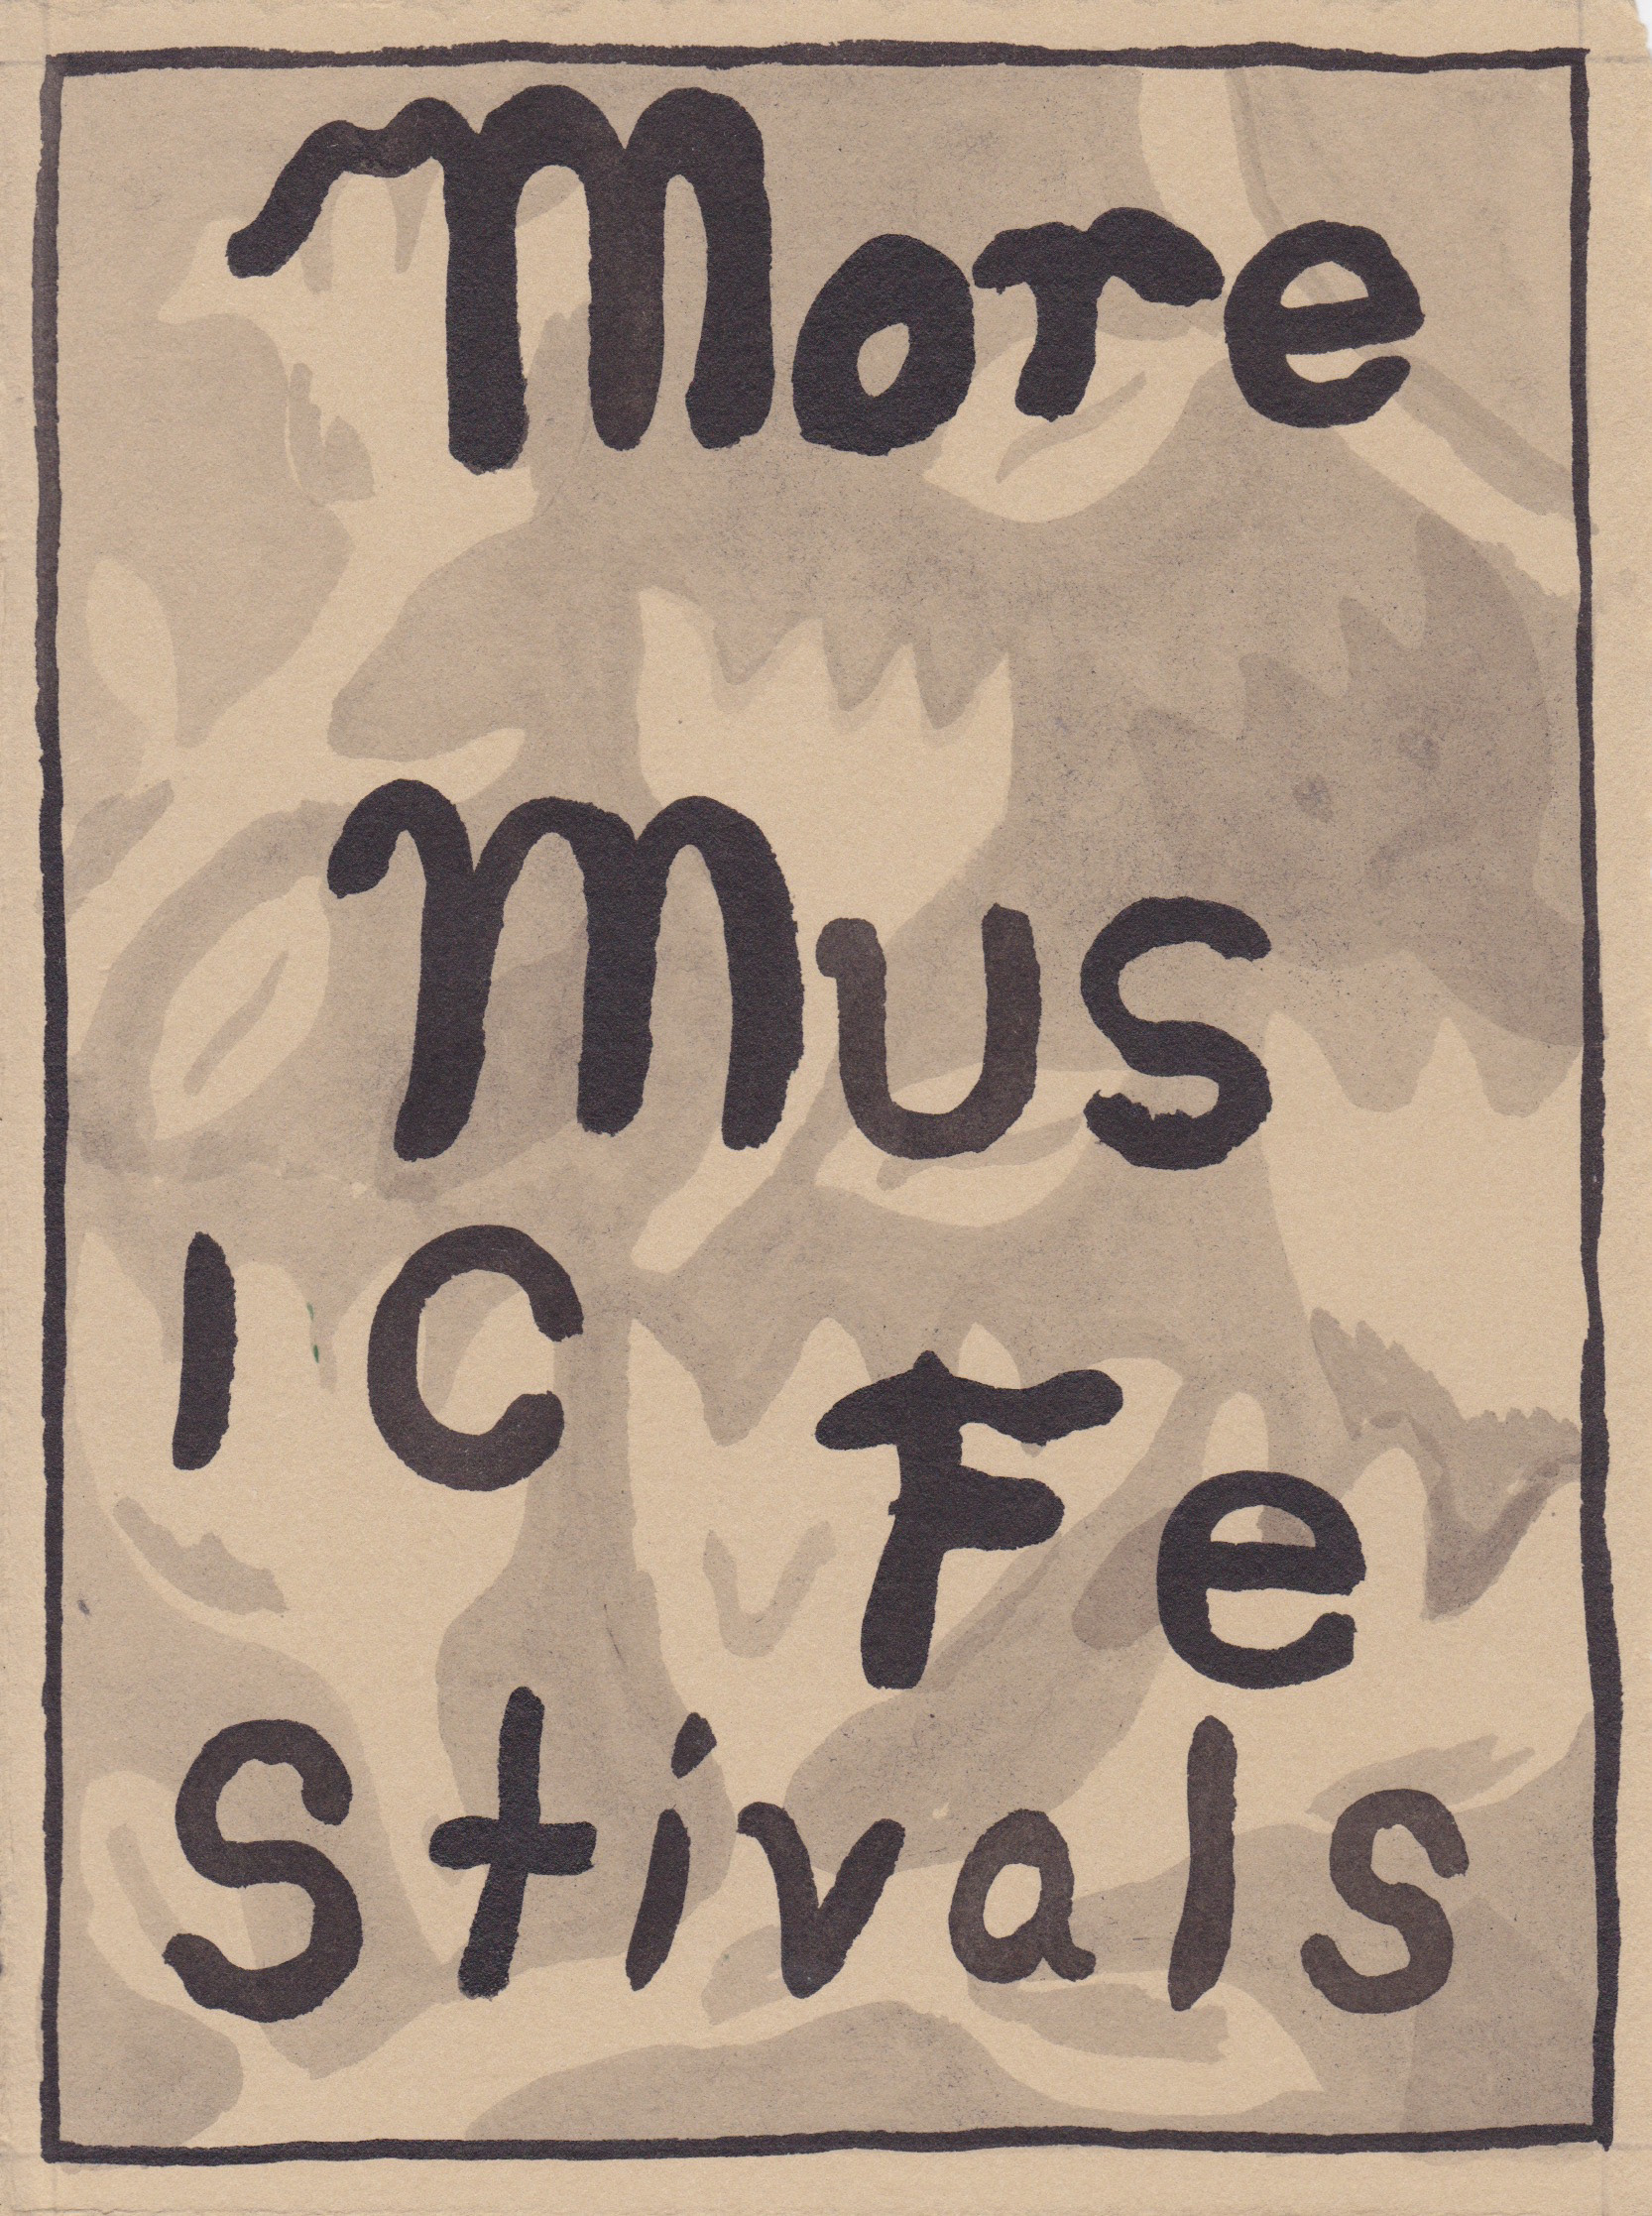 More
Mus
ic Fe
Stivals